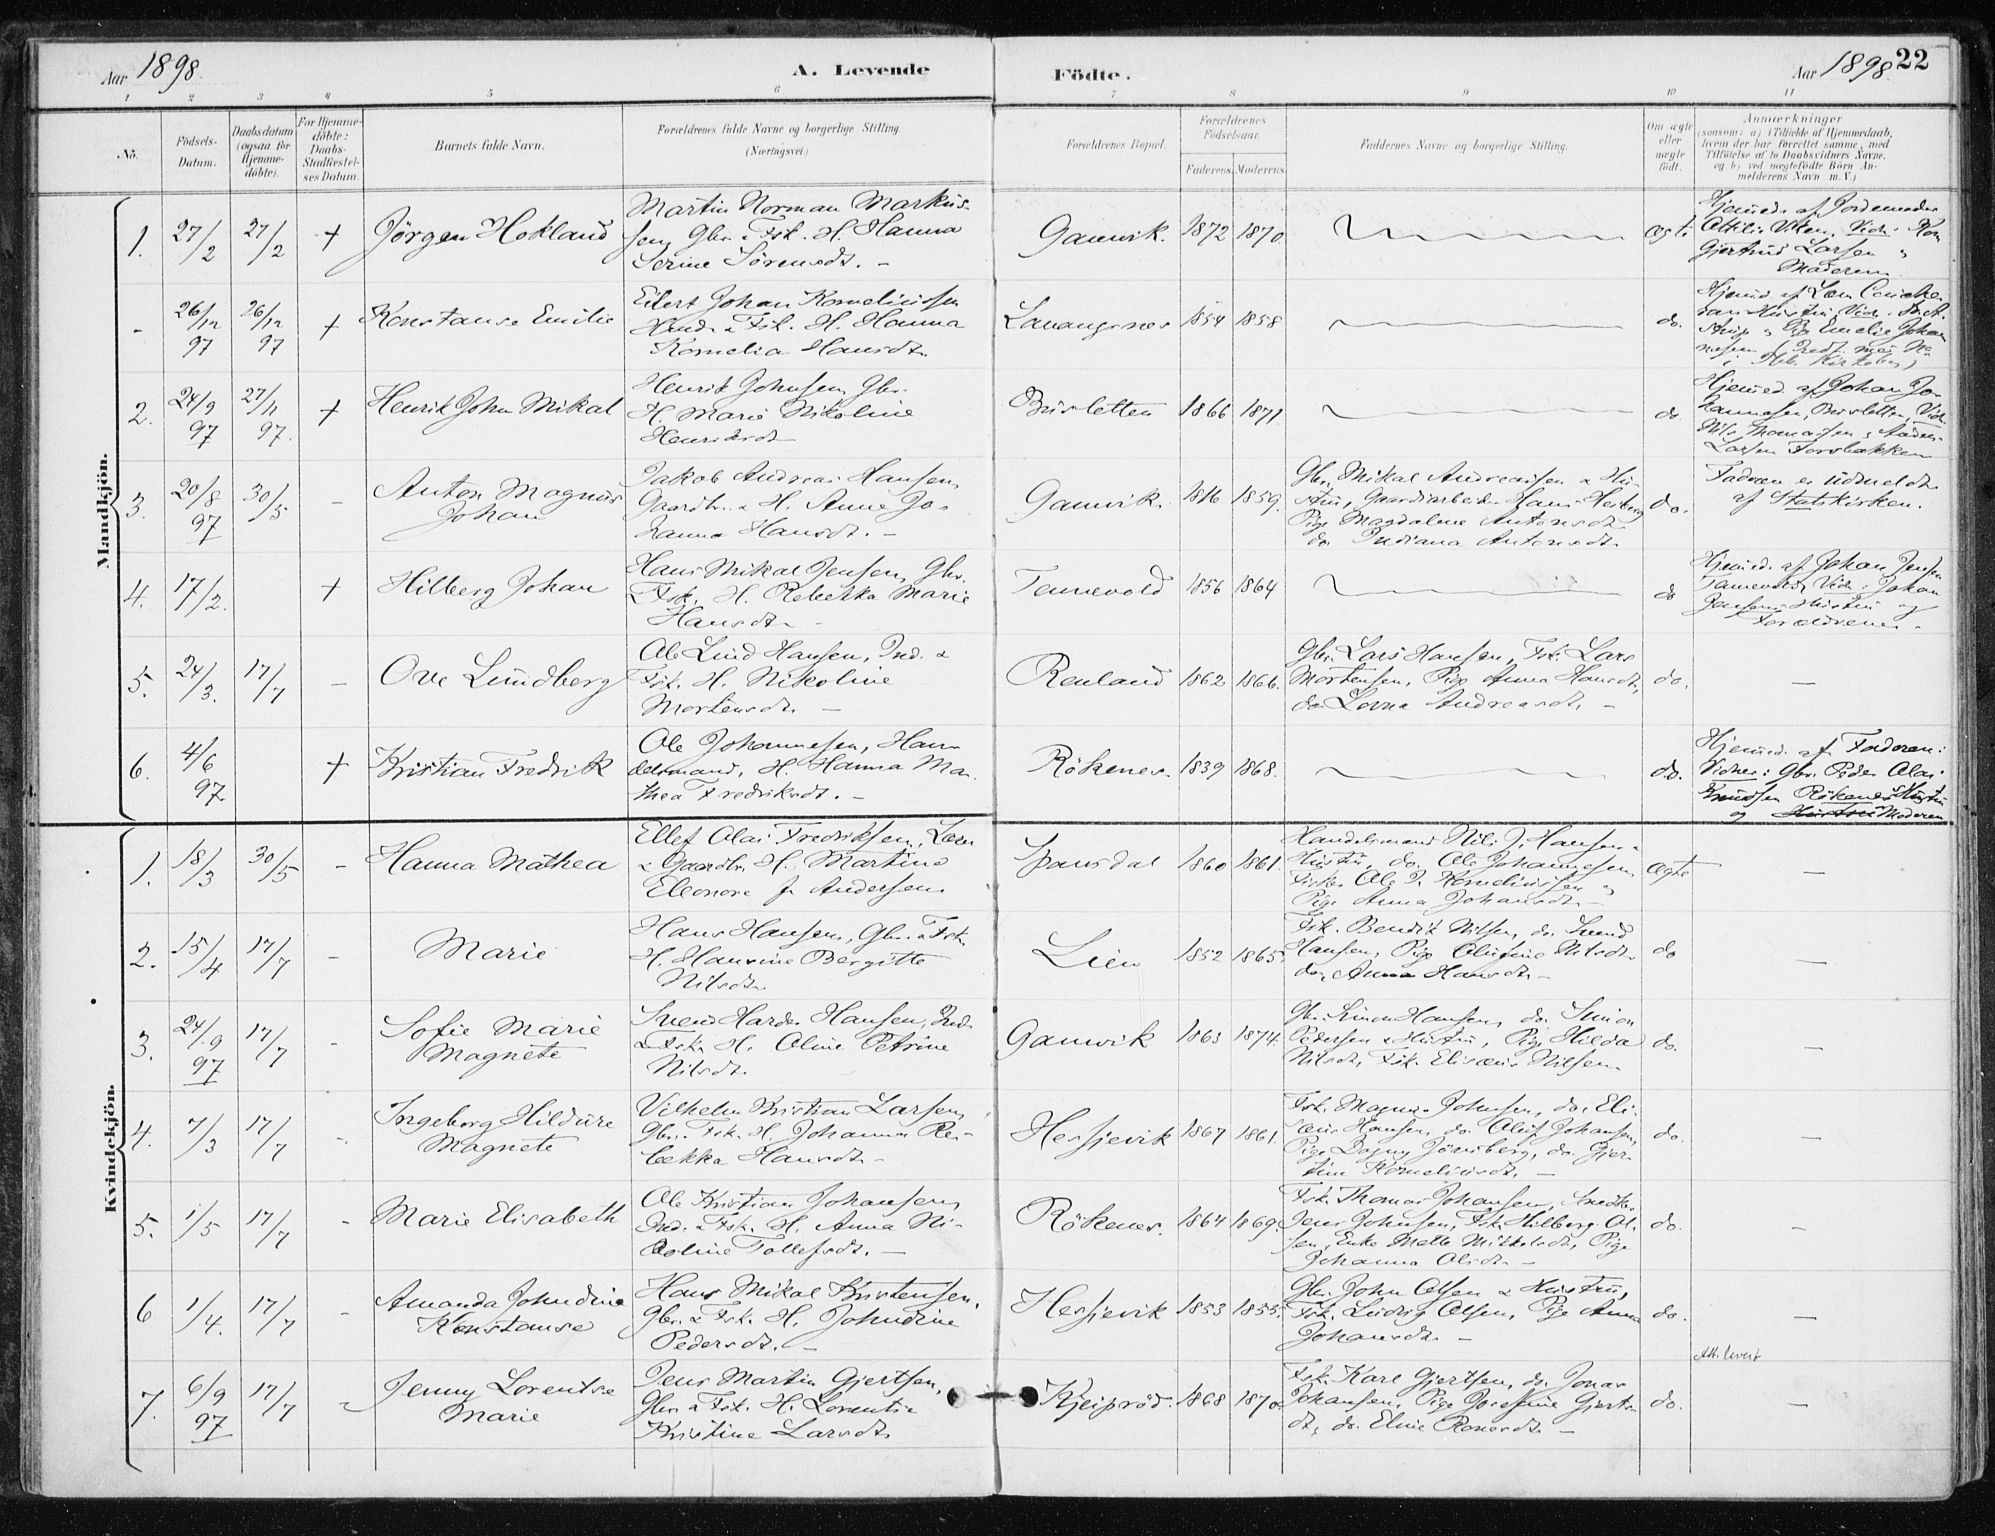 Aar 1898. A. Levende Födte. Aar 1898. 22
1 2 3 4 5 6 7 8 9 10 11
No.
Födsels-
Datum.
Daabsdatum
(ogsaa for
Hjemme-
döbte).
For Hjemme-
döbte:
Daabs-
Stadfæstel-
ses Datum.
Barnets fulde Navn.
Forældrenes fulde Navne og borgerlige Stilling.
(Næringsvei.)
Forældrenes Bopæl.
Forældrenes
Födselsaar.
Faderens. Moderens.
Faddernes Navne og borgerlige Stilling.
Om ægte
eller
uægte
födt.
Anmærkninger
(saasom: a) i Tilfælde af Hjemmedaab,
hvem der har forrettet samme, med
Tilföielse af to Daabsvidners Navne,
og b) ved uægtefödte Börn An-
melderens Navn m. V.)
Mandkjön.
1. 27/2 27/2 + Jörgen Hokland
Martin Norman Markus-
sen, Gbr. & Fsk. H. Hanna
Serine Sörensdt. -
Gamvik. 1872 1870. ægte
Larsen
Moderen
- 26/12 97 26/12 97 + Konstanse Emilie
Eilert Johan Korneliussen
H. Hanna
Kornelia Hansdt.
Lavangsnes 1854 1858 do.
2. 24/9 97 27/11 97. + Henrik John Mikal
Henrik Johnsen, Gbr.
H. Marie Nikoline
Henriksdt
1866 1871 do
Hjemmed. af Johan Jo-
hannesen
3. 20/8 97 30/5 - Anton Magnus
Johan
Jakob Andreas Hansen,
Gaardbr. & H. Anne Jo-
hanna Hansdt. -
Gamvik. 1816 1859.
Gbr. Mikal Andreassen & Hu-
stru, Gaardarbeider Hans
Pige Magdalene Antonsdt.
do. Indiana Antonsdt.
do.
Faderen er udmeldt
af Statskirken.
4. 17/2. + Hilberg Johan
Hans Mikal Jensen, Gbr.
& Fsk. H. Rebekka Marie
Hansdt. -
Tennevold 1856 1864 do
Hjemmed. af Johan Jensen
Tennevold, Vidn: Johan
Jensens Hustru og
Forældrene.
5. 24/3. 17/7 - Ove Lundberg
Ole Lund Hansen, Ind. &
Fsk. H. Nikoline
Mortensdt. -
Renland 1862 1866.
Gbr. Lars Hansen, Fsk. Lars
Mortensen, Pige Anna Hansdt,
do. Lovna Andreasdt, -
do. -
6. 4/6 97. + Kristian Fredrik
Ole Johannesen, Han-
delsmand, H. Hanna Ma-
thea Fredriksdt. -
Rökenes. 1839 1868. do.
Hjemmed. af Faderen:
Vidner: Gbr. Peder Olai
Knudsen Rökenes Hustru
og Hustru Moderen
Kvindekjön.
1. 18/3 30/5 - Hanna Mathea
Ellef Olai Fredriksen, Læn
& Gaardbr. H. Martine
Eleonore f. Andersen.
Spansdal 1860 1861.
Handelsmand Nils J. Hansen &
Hustru, do. Ole Johannesen,
Fisker Ole P. Korneliussen &
Pige Anna Johansdt. -
ægte -
2. 15/4 17/7 - Marie
Hans Hansen, Gbr. & Fsk.
H. Hansine Bergitte
Nilsdt.
Lien 1852 1865.
Fsk. Bendik Nilsen, do. Svend
Hansen, Pige Olufine Nilsdt.
do. Anna Hansdt. -
do -
3. 24/9 97 17/7 - Sofie Marie
Magnete
Svend Harder Hansen, Ind.
& Fsk. H. Oline Petrine
Nilsdt.
Gamvik 1863 1874.
Gbr. Simon Hansen, do. Simon
Pedersen & Hustru, Pige Hilda
Nilsdt, Fsk. Elisæus Nilsen.
do. -
4. 7/3 17/7 - Ingeborg Hildure
Magnete
Vilhelm Kristian Larsen,
Gbr. & Fsk. H. Johanna Re-
bekka Hansdt. -
Hesjevik 1867 1861.
Fsk. Magnus Johnsen, do. Eli-
sæus Hansen, do. Oluf Johansen,
Pige Dagny Jönsberg, do. Gjer-
tine Korneliusdt. -
do. -
5. 1/5 17/7 - Marie Elisabeth
Ole Kristian Johansen,
Ind. & Fsk. H. Anna Ni-
koline Tollefsdt. -
Rökenes. 1864 1869.
Fsk. Thomas Johansen, Snedker
Jens Johnsen, Fsk. Hilberg Ol-
sen, Enke Mette Mikkelsdt, Pige
Johanna Olsdt. -
do. -
6 1/4. 17/7 - Amanda Johndine
Konstanse
Hans Mikal Kristensen,
Gbr. & Fsk. H. Johndine
Pedersdt. -
Hesjevik 1853 1855.
Gbr. John Olsen & Hustru,
Fsk. Ludvig Olsen, Pige Anna
Johansdt. -
do. -
7. 6/9 97 17/7 - Jenny Lorentse
Marie
Jens Martin Gjertsen,
Gbr. & Fsk. H. Lorentse
Kristine Larsdt.
Kjeiprød. 1868 1870
Fsk. Karl Gjertsen, do. Jonas
Johansen, Pige Josefine Gjerts-
dt, do. Eline Ronesdt. -
do. Att. levert
-